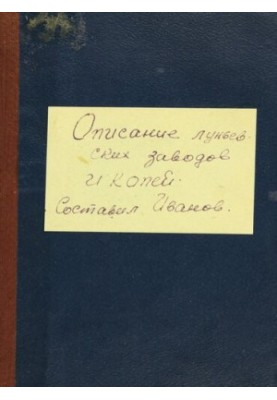 Описание луньев-
ских заводов
и копей.
Составил Иванов.